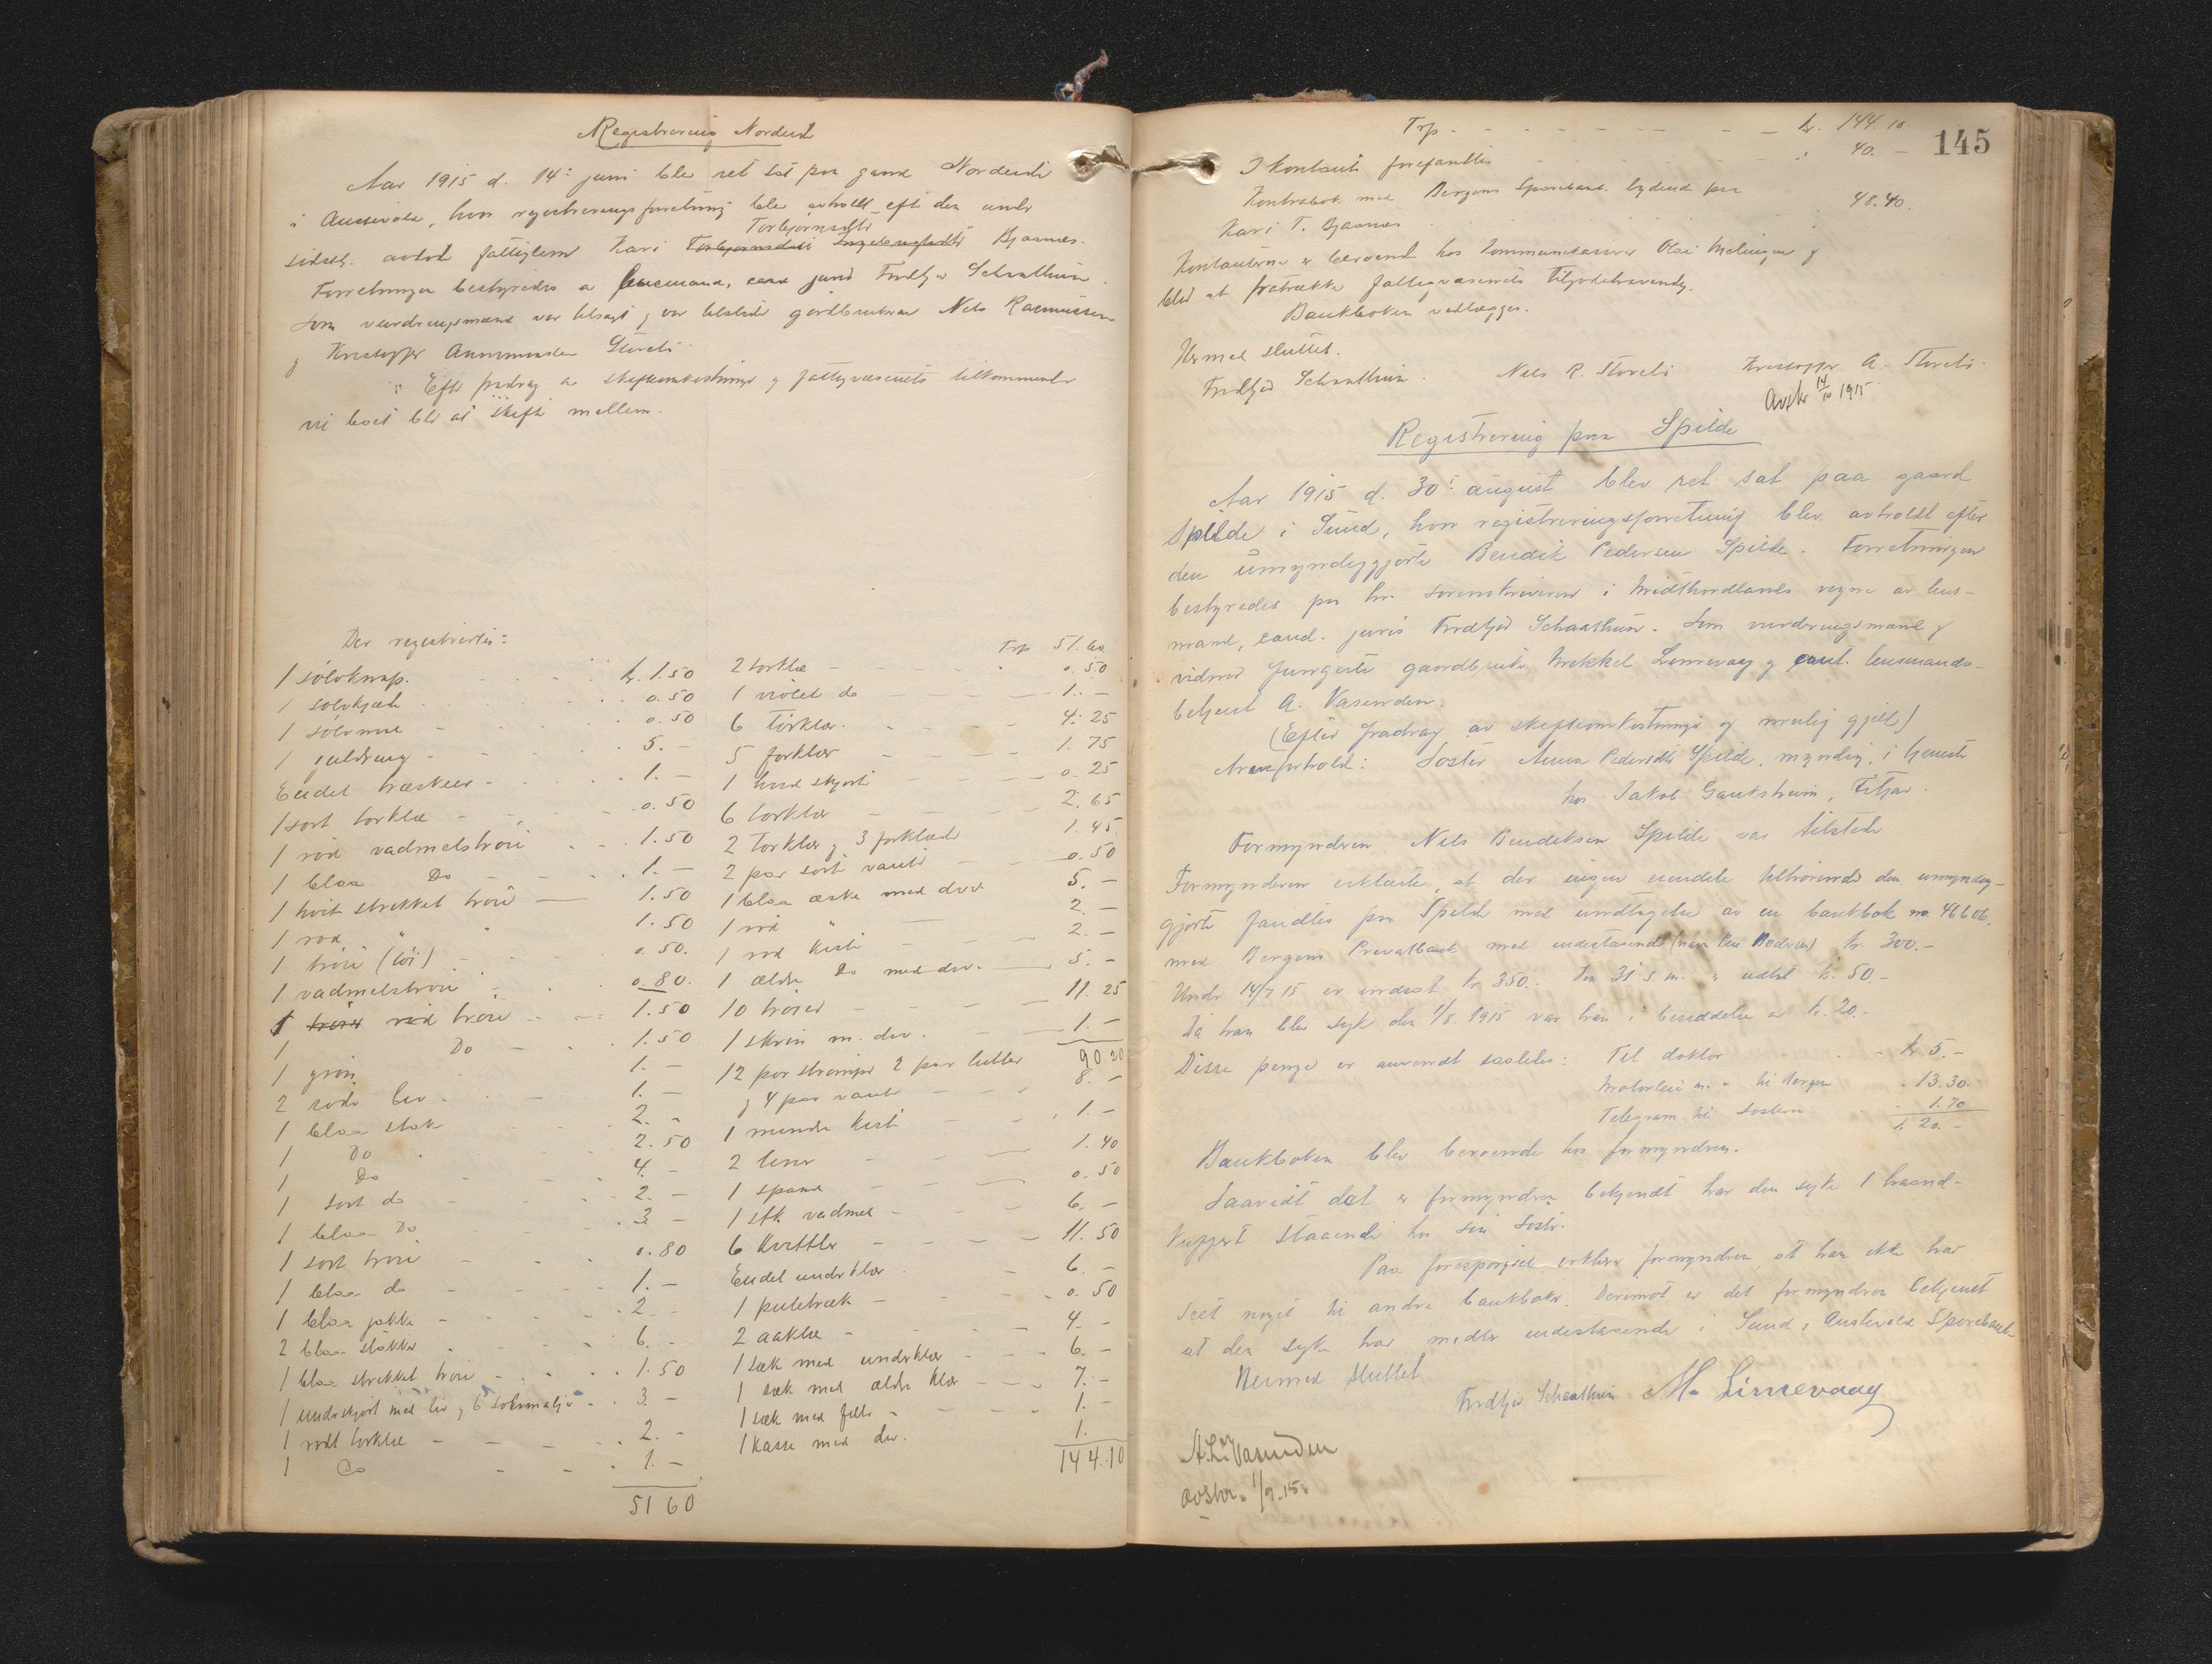 Registrering Nordeide
Aar 1915 d. 14: juni blev ret sat paa gaard Nordeide
i Austevold, hvor registreringsforretning blev avholdt efter den under
Torbjørnsdtr
sidstl. avdød fattiglem Kari Bjaanæs.
Forretningen bestyredes av lensmand, cand juris Fridtjov Schaathun.
Som vurderingsmænd var tilsagt og var tilstede gårdbrukerne Nils Rasmussen
og Kristoffer Storeli.
: Efter fradrag av skifteomkostninger og fattigvæsenets tilkommende
vil boet bli at skifte mellem.
Der registrertes:
1 sølvknap. kr. 1.50
1 sølvkjæde 0.50
1 0.50
1 guldring 5.-
Endel træskeer 1.-
1 sort tørklæ 0.50
1 rød vadmelstrøie 1.50
1 blaa Do 1.-
1 hvit strikket trøie 1.50
1 rød " " 1.50
1 trøie (tøi) 0.50.
1 vadmelstrøie 0.80.
1 rød trøie 1.50
1 Do 1.50
1 grøn 1.-
2 røde liv 1.-
1 blaa stak 2.-
1 Do 2.50
1 Do 4.-
1 sort do 2.-
1 blaa Do 3.-
1 sort trøie 0.80
1 blaa do 1.-
1 blaa jakke 2.-
2 blaa stakker 6.-
1 blaa strikket trøie 1.50
1 underskjørt med liv og 6 sølvmaljer 3.-
1 rødt tørklæ 2.-
1 Do 1.-
51 60
Trp 51.60
2 tørklæ 0.50
1 violet do 1.-
6 tørklær 4.25
5 forklær 1.75
1 hvid skjorte 0.25
6 tørklær 2.65
2 tørklær og 3 forklæder 1.45
2 par sorte vanter 0.50
1 blaa æske med div. 5.-
1 rød " 2.-
1 rød kiste 2.-
1 ældre Do med div. 5.-
10 trøier 11.25
1 skrin m. div. 1.-
90.20
12 par strømper 2 par lester
og 4 par vanter 8.-
1 mindre kiste 1.-
2 liner 1.40
1 spand 0.50
1 stk vadmel 6.-
6 kvittler 11.50
Endel underklær 6.-
1 putetræk 0.50
2 aaklæ 4.-
1 sæk med underklær 6.-
1 sæk med ældre klær 7.-
1 sæk med filler 1.-
1 kasse med div. 1.
144.10
145
Trp kr. 144.10
I kontanter forefandtes 40.-
Kontrabok med Bergens Sparebank lydende paa
Kari T. Bjaanes 48.40.
Kontanterne er beroende hos kommunekasserer Olai Melingen og
blir at fratrække fattigvæsenets tilgodehavende.
Bankboken vedlægges.
Hermed sluttet.
Fridtjov Schaathun. Nils R. Storeli Kristoffer A. Storeli.
Avskr 14/10 1915
Registrering paa Spilde
Aar 1915 d. 30: august blev ret sat paa gaard
Spilde i Sund, hvor registreringsforretning blev avholdt efter
den umyndiggjorte Bendik Pedersen Spilde. Forretningen
bestyredes paa hr. sorenskriveren i Midthordlands vegne av lens-
mand, cand. juris Fridtjov Schaathun. Som vurderingsmænd og
vidner fungerte gaardbruker Mikkel Linnevaag og lensmands-
betjent A. Vasenden.
(Efter fradrag av skifteomkostninger og mulig gjeld)
Arveforhold: Søster Anna Pedersdtr Spilde, myndig, i tjeneste
hos Jakob Gaukstheim, Fitjar.
Formynderen Nils Bendiksen Spilde var tilstede
Formynderen erklærte, at der ingen eiendele tilhørende den umyndig-
gjorte fandtes paa Spilde med undtagelse av en bankbok no 46606.
med Bergens Privatbank med indestaaende kr. 300.-
Under 14/7 15 er indsat kr. 350.- Den 31 s. m. er uttat kr. 50.-
Da han blev syk den 1/8 1915 var han i besiddelse av kr. 20.-
Disse penge er anvendt saaledes: Til doktor kr 5.-
Motorleie m. v. til Bergen 13.30
Telegram til søsteren 1.70
kr 20.-
Bankboken blev beroende hos formynderen.
Saavidt det er formynderen bekjendt har den syke 1 haand-
kuffert staaende hos sin søster.
Paa forespørgsel erklærer formynderen at han ikke har
seet noget til andre bankbøker. Derimot er det formynderen bekjendt
at den syke har midler indestaaende i Sund & Austevold Sparebank
Hermed sluttet
Fridtjov Schaathun M. Linnevaag
A. L. Vasenden
avskr. 1/9.15.